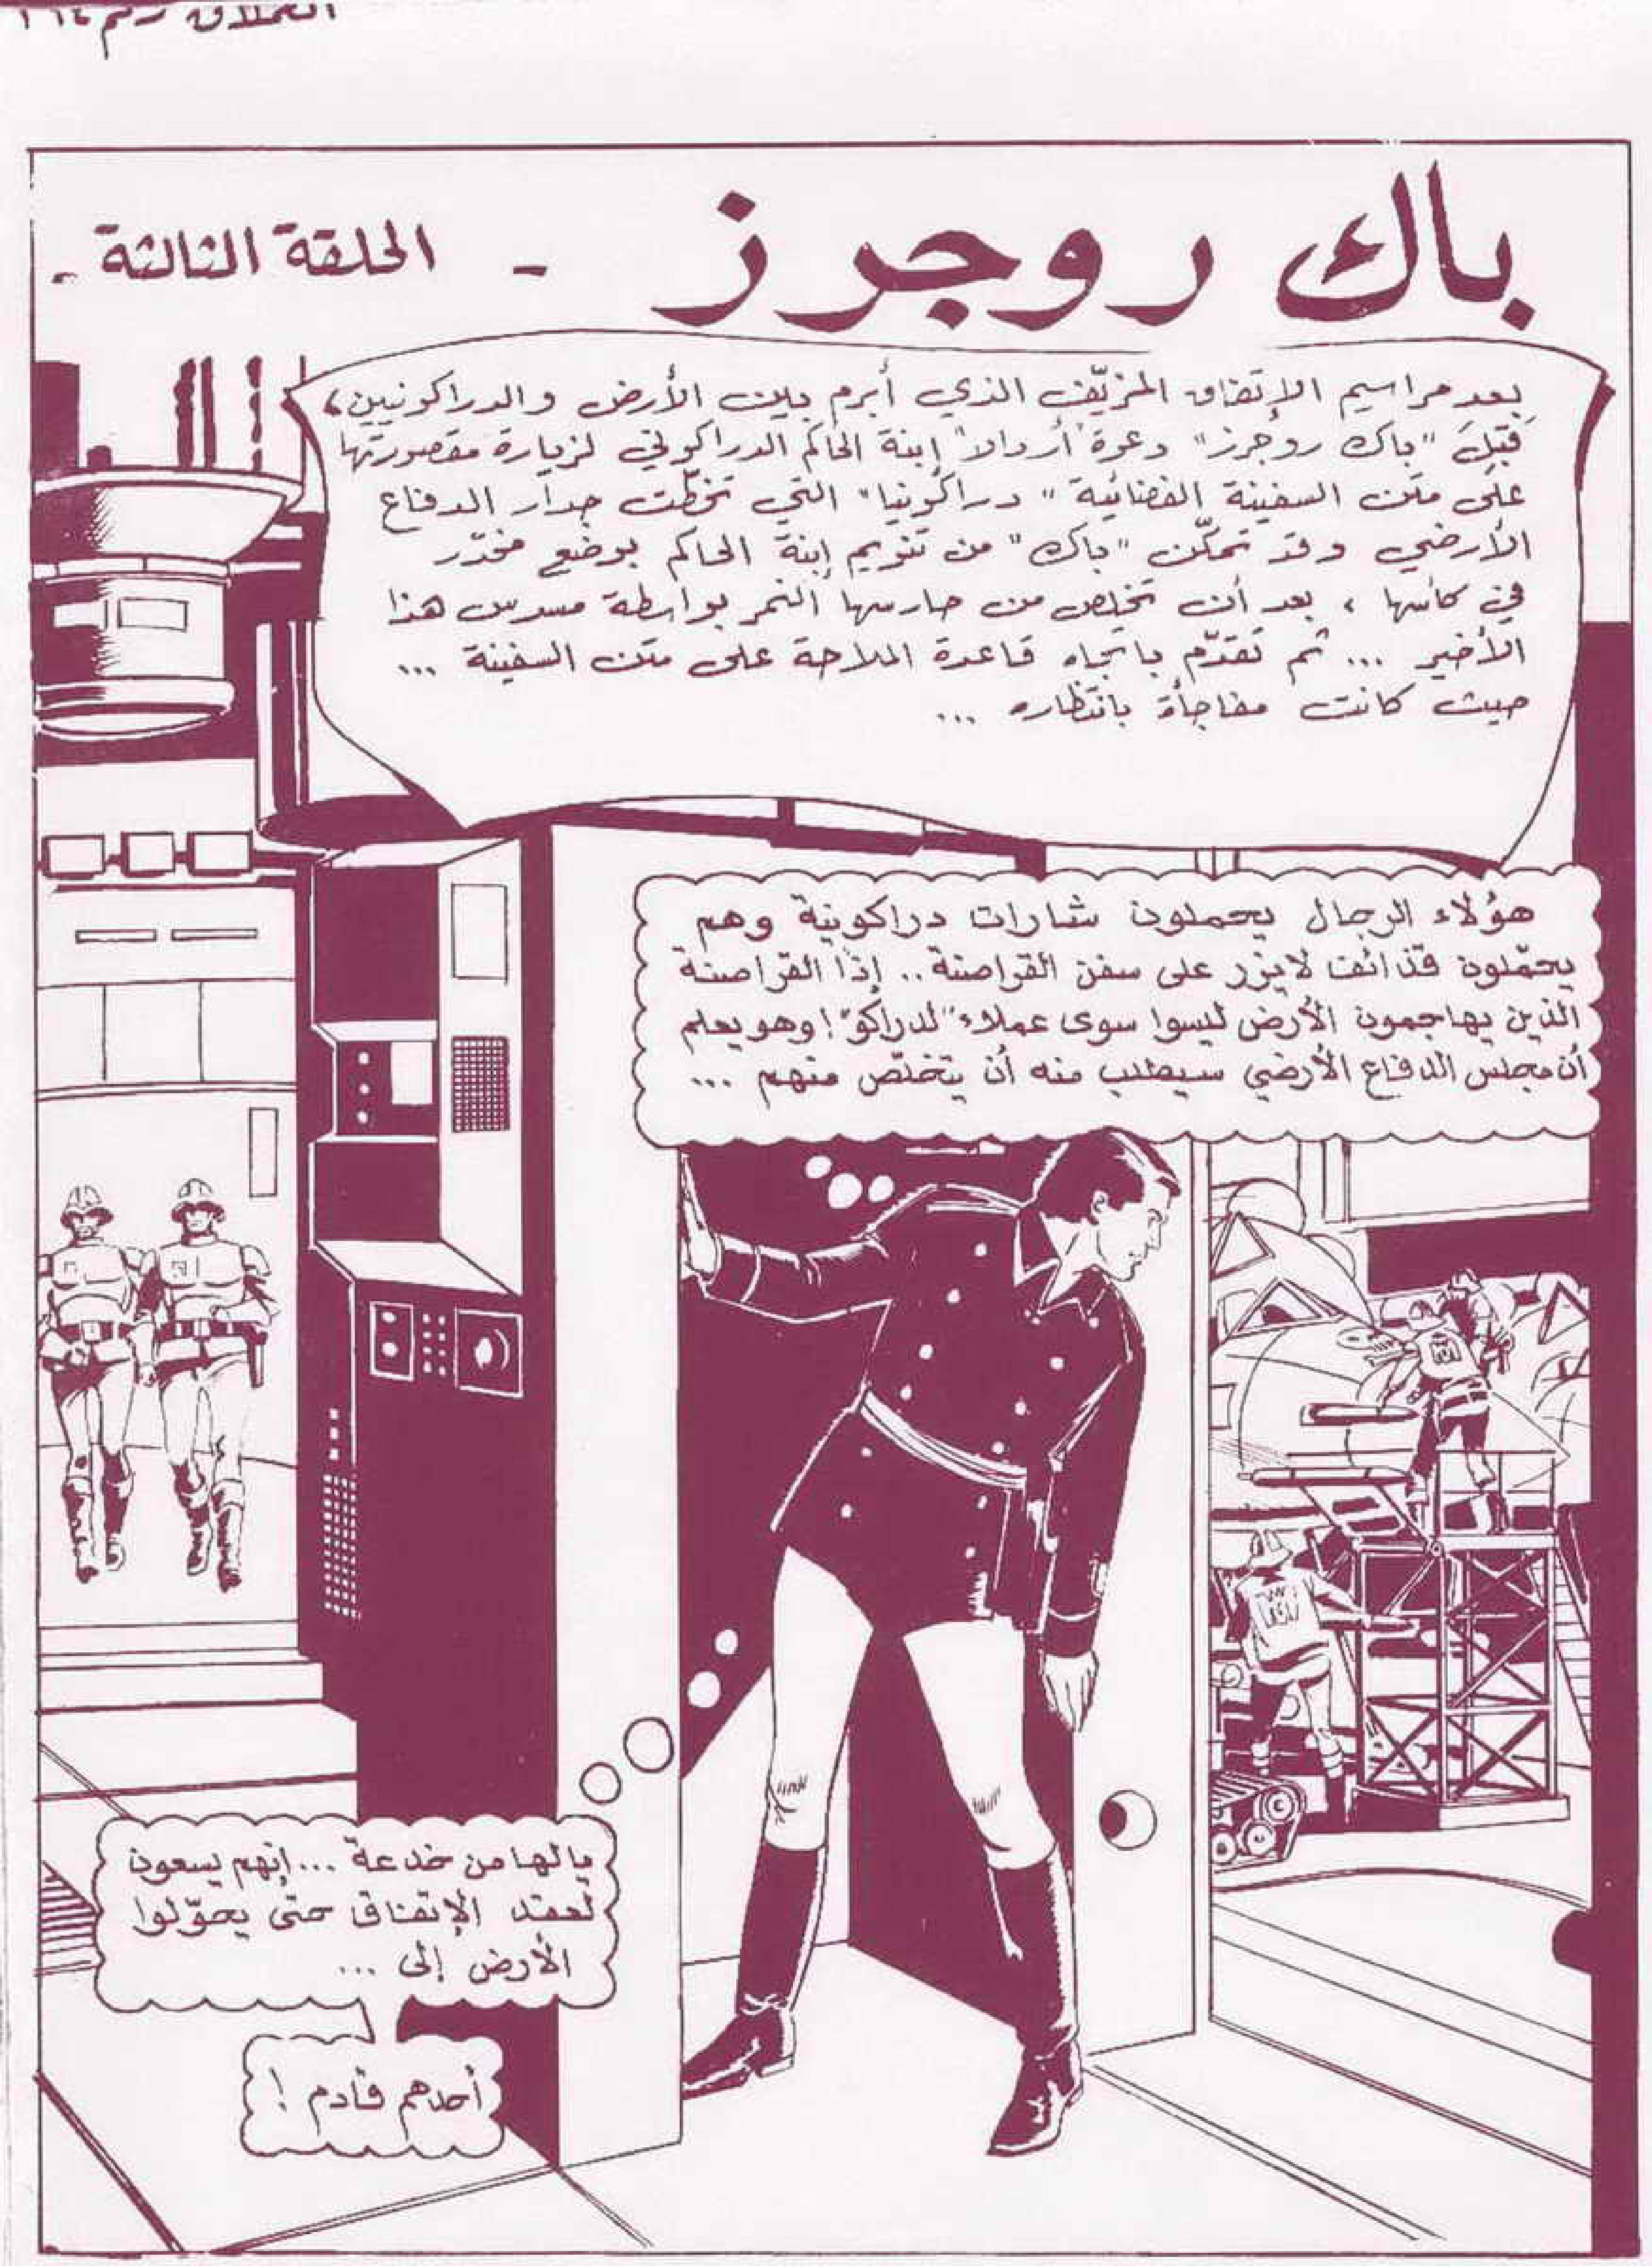 العملاق رقم
باك روجرز - الحلقة الثالثة -
بعد مراسيم الإتفاق المزيّف الذي أبرم بين الأرض والدراكونيين،
قَبِلَ "باك روجرز" دعوة "أردالا" إبنة الحاكم الدراكوني لزيارة مقصورتها
على متن السفينة الفضائية "دراكونيا" التي تخطّت جدار الدفاع
الأرضي وقد تمكّن "باك" من تنويم إبنة الحاكم بوضع مخدّر
في كأسها ، بعد أن تخلص من حارسها النمر بواسطة مسدس هذا
الأخير ... ثم تقدّم باتجاه قاعدة الملاحة على متن السفينة ...
حيث كانت مفاجأة بانتظاره ...
هؤلاء الرجال يحملون شارات دراكونية وهم
يحمّلون قذائف لايزر على سفن القراصنة .. إذًا القراصنة
الذين يهاجمون الأرض ليسوا سوى عملاء "لدراكو"! وهو يعلم
أن مجلس الدفاع الأرضي سيطلب منه أن يتخلّص منهم ...
يا لها من خدعة ... إنهم يسعون
لعقد الإتفاق حتى يحوّلوا
الأرض إلى ...
أحدهم قادم !